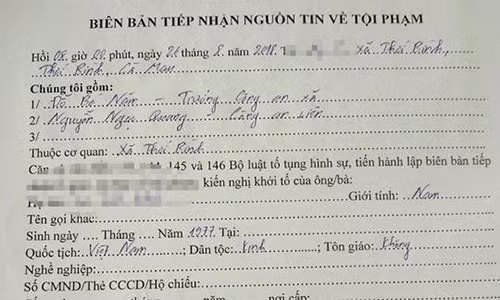 BIÊN BẢN TIẾP NHẬN NGUỒN TIN VỀ TỘI PHẠM
Hồi 08 giờ 00 phút, ngày 26 tháng 8 năm 2018 T xã Thới Bình,
Thới Bình, Cà Mau
Chúng tôi gồm:
1/ Năm – Trưởng Công an xã
2/ Nguyễn Ngọc Quang – Công an viên
3/
Thuộc cơ quan: Xã Thới Bình
Căn 145 và 146 Bộ luật tố tụng hình sự, tiến hành lập biên bản tiếp
kiến nghị khởi tố của ông/bà:
Họ Giới tính: Nam
Tên gọi khác:
Sinh ngày .... Tháng .... Năm 1977 Tại:
Quốc tịch: Việt Nam; Dân tộc: Kinh; Tôn giáo: Không
Nghề nghiệp:
Số CMND/Thẻ CCCD/Hộ chiếu:
nơi cấp: